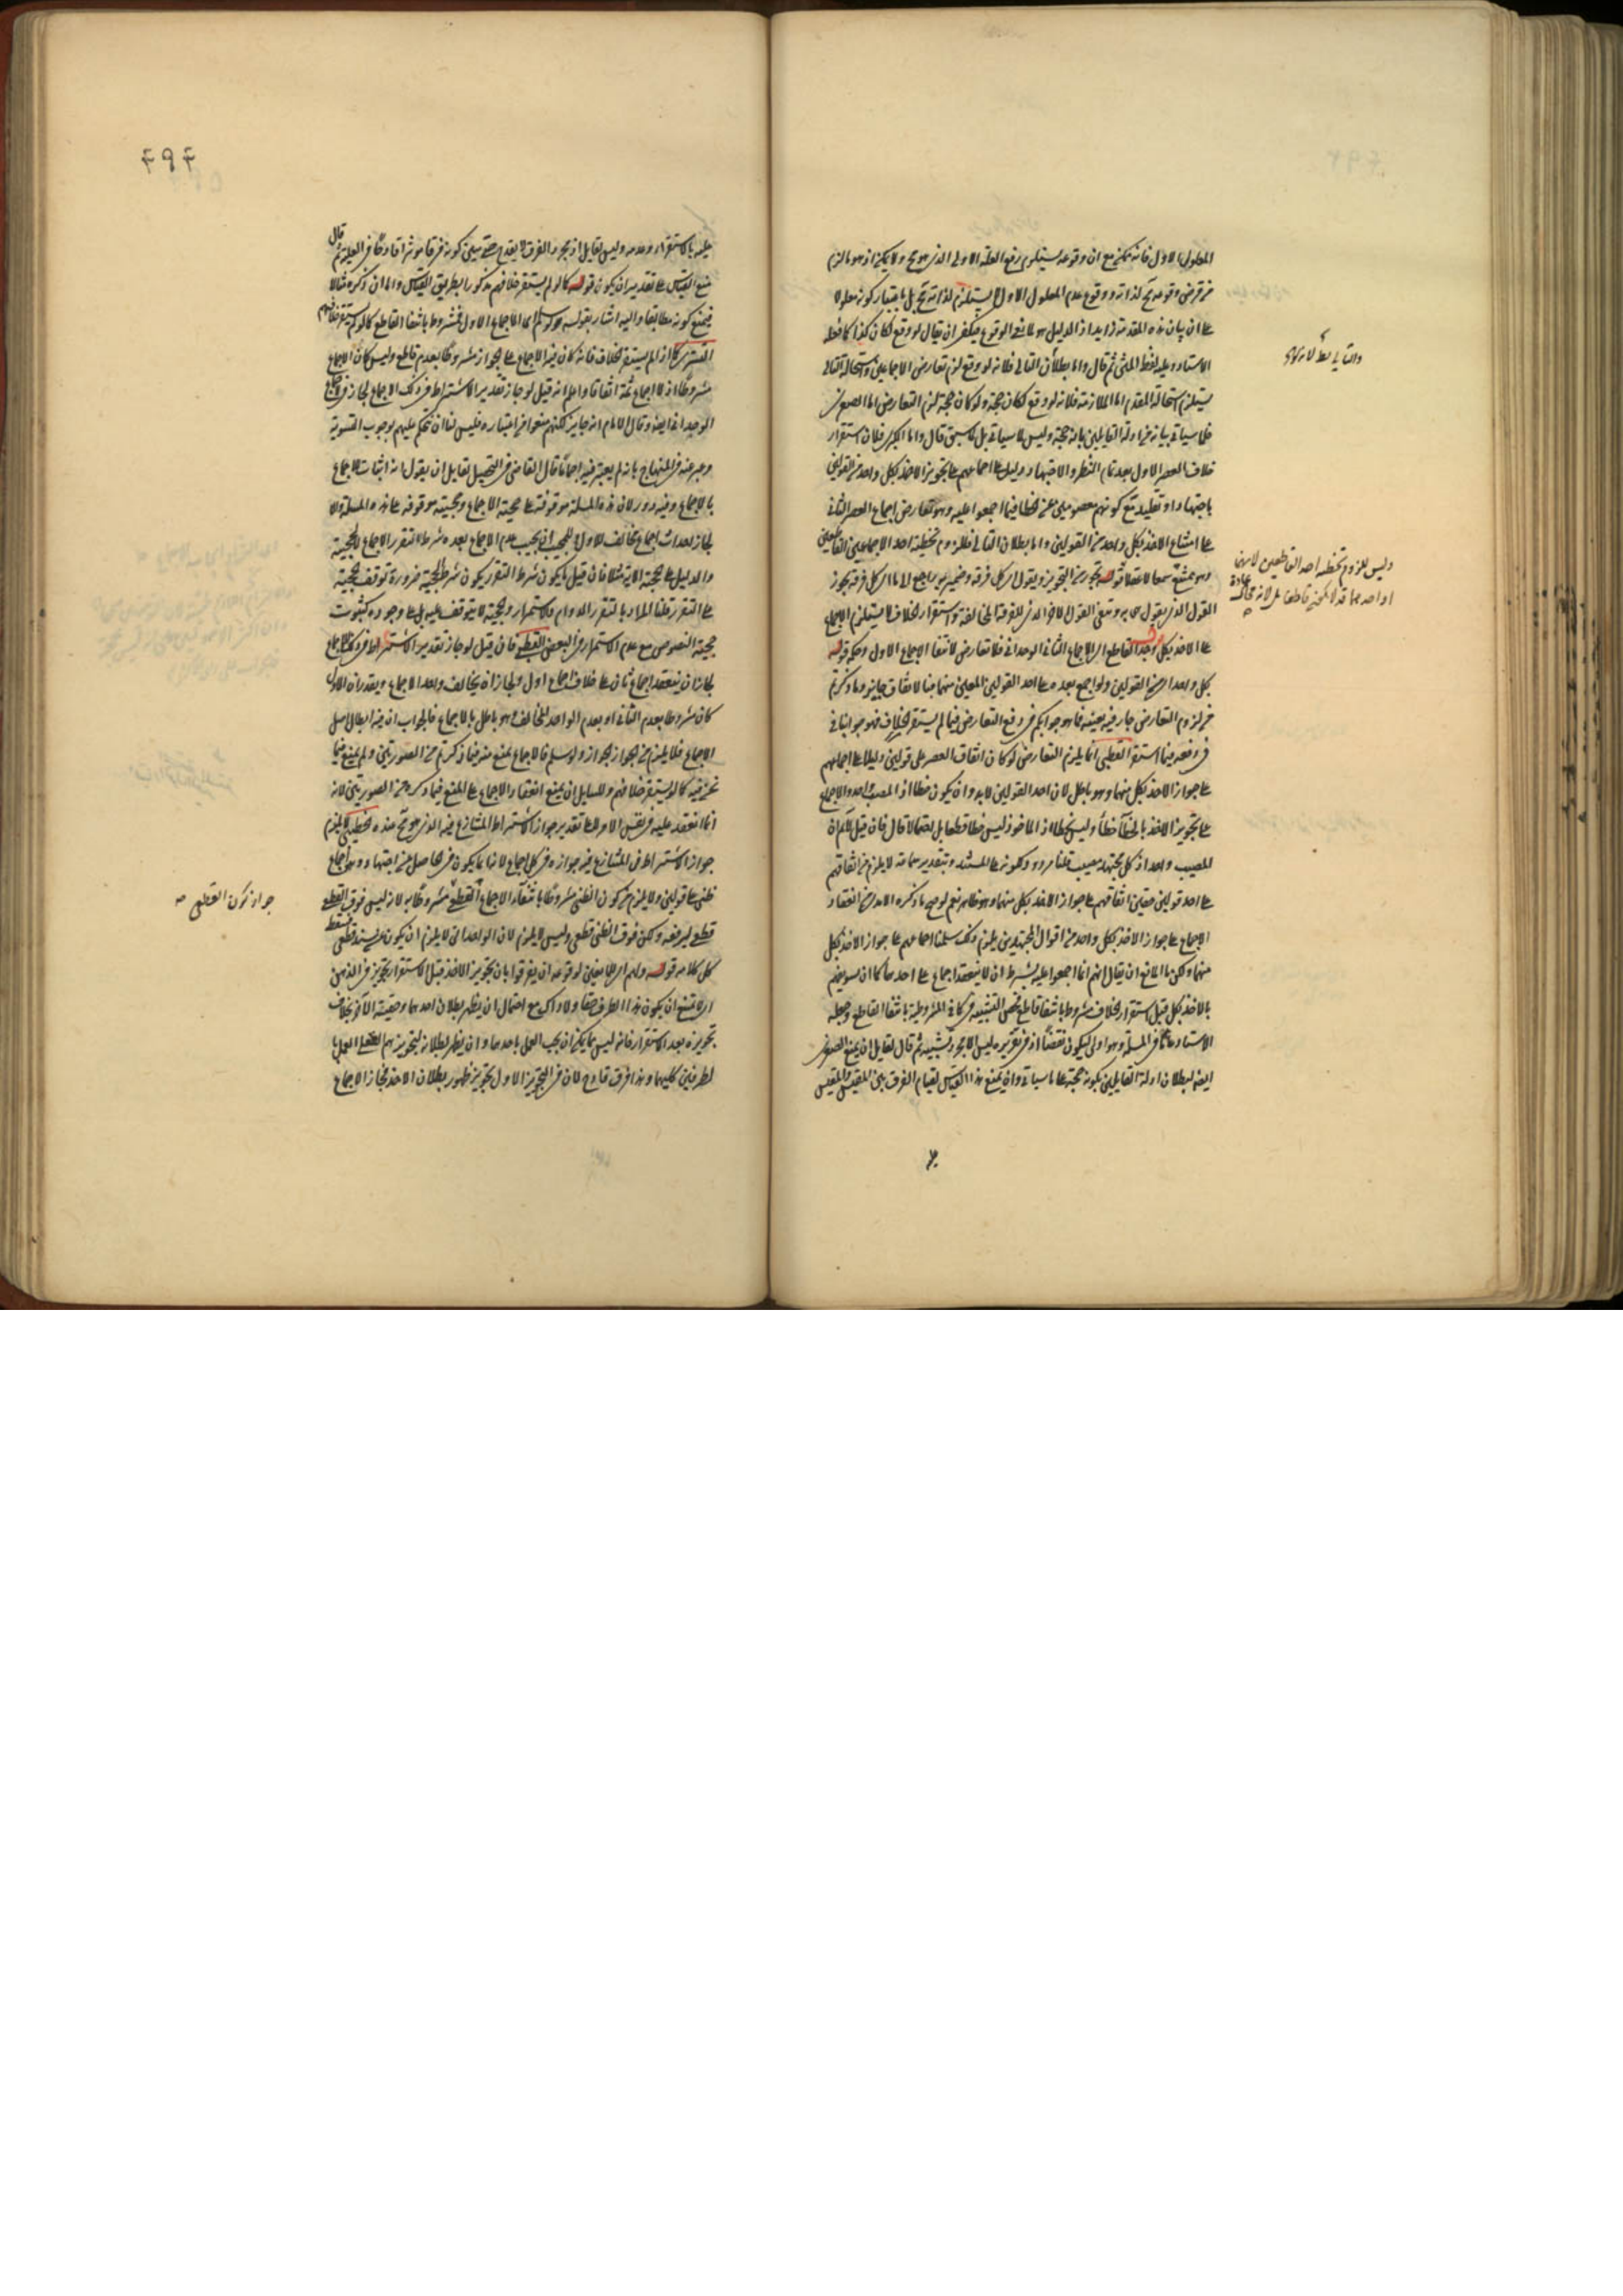 المعلول الاول فانه ممكن مع ان وقوعه يستلزم رفع العلة الاولى الذى هو مح ولا يمكن اذ هو ما لزم
من فرض وقوعه مح لذاته ووقوع عدم المعلول الاول لا يستلزم لذاته مح بل باعتبار كونه معلولا
على ان بيان هذه المقدمة زايد اذ الدليل هو لمانع الوقوع فيكفى ان يقال لو وقع لكان كذا كما فعله
الاستاد وعليه لفظ المتن ثم قال واما بطلان التالى فلانه لو وقع لزم تعارض الاجماعين واستحالة التالى
يستلزم استحالة المقدم اما الملازمة فلانه لو وقع لكان حجة ولو كان حجة لزم التعارض اما الصغرى
فلما سياتى بيانه من ادلة القايلين بانه حجة وليس لما سياتى بل لما سبق قال واما الكبرى فلان استقرار
خلاف العصر الاول بعد تمام النظر والاجتهاد دليل على اجماعهم على تجويز الاخذ بكل واحد من القولين
باجتهاد او تقليد مع كونهم معصومين عن الخطا فيما اجمعوا عليه وهو تعارض اجماع العصر الثانى
على امتناع الاخذ بكل واحد من القولين واما بطلان التالى فللزوم تخطية احد الاجماعين القاطعين
وهو ممتنع سمعا لا عقلا قوله تجوز من التجويز ويقول اى كل فرقة وضمير به راجع الى ما اى كل فرقة تجوز
القول الذى يقول به وتنفى القول الاخر الذى للفرقة المخالفة واستقرار الخلاف لا يستلزم الاجماع
على الاخذ بكل وجد القاطع اى الاجماع الثانى الوحدانى فلا تعارض لانتفا الاجماع الاول وحكمه قوله
بكل واحد اى من القولين ولو اجمع بعده على احد القولين المعين منهما هنا لاتفاق جايز وما ذكرتم
من لزوم التعارض جار فيه بعينه فما هو جوابكم فى دفع التعارض فيما لم يستقر الخلاف فهو جوابنا فى
دفعه فيما استقر القطبى انما يلزم التعارض لو كان اتفاق العصر على قولين دليلا على اجماعهم
على جواز الاخذ بكل منهما وهو باطل لان احد القولين لابد وان يكون خطا اذ المصيب واحد والاجماع
على تجويز الاخذ بالخطأ خطأ وليس بخطا اذ الماخوذ ليس خطا قطعا بل احتمالا قال فان قيل لا نسلم ان
المصيب واحد اذ كل مجتهد مصيب قلنا مردود لكونه على المستند وبتقدير تمامه لا يلزم من اتفاقهم
على احد قولين معينين اتفاقهم على جواز الاخذ بكل منهما وهو ظاهر نعم لو صح ما ذكره الامدى من انعقاد
الاجماع على جواز الاخذ بكل واحد من اقوال المجتهدين يلزم ذلك سلمنا اجماعهم على جواز الاخذ بكل
منهما ولكن ما المانع ان يقال انهم انما اجمعوا عليه بشرط ان لا ينعقد اجماع على احدهما كما ان تسويغهم
بالاخذ بكل قبل استقرار الخلاف مشروط بانتفا قاطع نحصى التشبيه فى كانى المشروطية بانتفا القاطع وجعله
الاستاد عاما فى المسئلة وهو اولى ليكون نقضا اذ فى تقريره ليس الا مجرد تشبيه ثم قال لقايل ان يمنع الصغرى
ايضا لبطلان ادلة القايلين بكونه حجة على ما سياتى وان يمنع هذا القياس لقيام الفرق بين المقيس والمقيس
والتالى بط لانه
وليس للزوم تخطية احد القاطعين لانهما
او احدهما قد لا يكون قاطعا بل لانه محال عادة
٤٩٤
عليه بالاستقرار وعدمه وليس لقايل اذ مجرد الفرق لا يقدح حتى يبين كونه فرقا موثرا قادحا فى العلية ثم قال
منع القياس على تقدير ان يكون قوله كما لو لم يستقر خلافهم مذكورا بطريق القياس واما ان ذكره مثالا
فيمنع كونه مطابقا واليه اشار بقوله ولو سلم اى الاجماع الاول فمشروط بانتفا القاطع كما لو لم يستقر خلافهم
التسترى كما اذ لم يستقر الخلاف فانه كان فيه الاجماع على الجواز مشروطا بعدم قاطع وليس كان الاجماع
مشروطا اذ لا اجماع ثمة اتفاقا واعلم انه قيل لو جاز تقدير الاشتراط فى ذلك الاجماع لجاز فى الاجماع
الوحدانى ايضا وقال الامام انه جايز لكنهم منعوا من اعتباره فليس لنا ان نحكم عليهم بوجوب التسوية
وعبر عنه فى المنهاج بانه لم يعتبر فيه اجماعا قال القاضى فى التحصيل لقايل ان يقول انه اثبات الاجماع
بالاجماع وفيه دور لان هذه المسئلة موقوفة على حجية الاجماع وحجيته موقوفة على هذه المسئلة والا
لجاز احداث اجماع مخالف للاول فالمجيب ان يجيب عدم الاجماع بعده شرط لتقرر الاجماع لا لحجيته
والدليل على حجية الاية مثلا فان قيل ما يكون شرط التقرر يكون شرط الحجية ضرورة توقف الحجية
على التقرر قلنا المراد بالتقرر الدوام والاستمرار والحجية لا يتوقف عليه بل على وجوده كثبوت
حجية النصوص مع عدم الاستمرار فى البعض القطبى فان قيل لو جاز تقدير الاشتراط فى ذلك الاجماع
لجاز ان ينعقد اجماع ثان على خلاف اجماع اول ولجاز ان يخالف واحد الاجماع ويقدر ان الاول
كان مشروطا بعدم الثانى او بعدم الواحد المخالف وهو باطل بالاجماع فالجواب ان فيه ابطال اصل
الاجماع فلا يلزم من الجواز الجواز ولو سلم فالاجماع يمنع منه فيما ذكرتم من الصورتين ولم يمنع فيما
نحن فيه كما لو لم يستقر خلافهم وللسايل ان يمنع انعقاد الاجماع على المنع فيما ذكره من الصورتين لانه
انما انعقد عليه فى نفس الامر لا على تقدير جواز الاشتراط المتنازع فيه الذى هو مح عنده الخطيبى لا يلزم
جواز الاشتراط فى المتنازع فيه جوازه فى كل اجماع لانه انما يكون فى الحاصل من اجتهاد وهى اجماع
ظنى على قولين ولا يلزم من كون الظنى مشروطا بانتفاء الاجماع القطعى القطعى مشروطا به لانه ليس فوق القطعى
قطعى ليرفعه ولكن فوق الظنى قطعى وليس لا يلزم لان الوحدانى لا يلزم ان يكون عن سند قطعى فسقط
كل كلامه قوله ولهم اى للمانعين لوقوعه ان يفرقوا بان تجويز الاخذ قبل الاستقرار تجويز فى الذهن
اى لا يمتنع ان يكون هذا الطرف حقا ولا ذاك مع احتمال ان يظهر بطلان احدهما وحقية الاخر بخلاف
تجويزه بعد الاستقرار فانه ليس كما يمكن ان يجب العمل باحدهما وان يظهر بطلانه لتجويزهم الفعل العمل با
لطرفين كليهما وهذا فرق قادح لان فى التجويز الاول تجويز ظهور بطلان الاخذ فجاز الاجماع
جواز كون القطعى